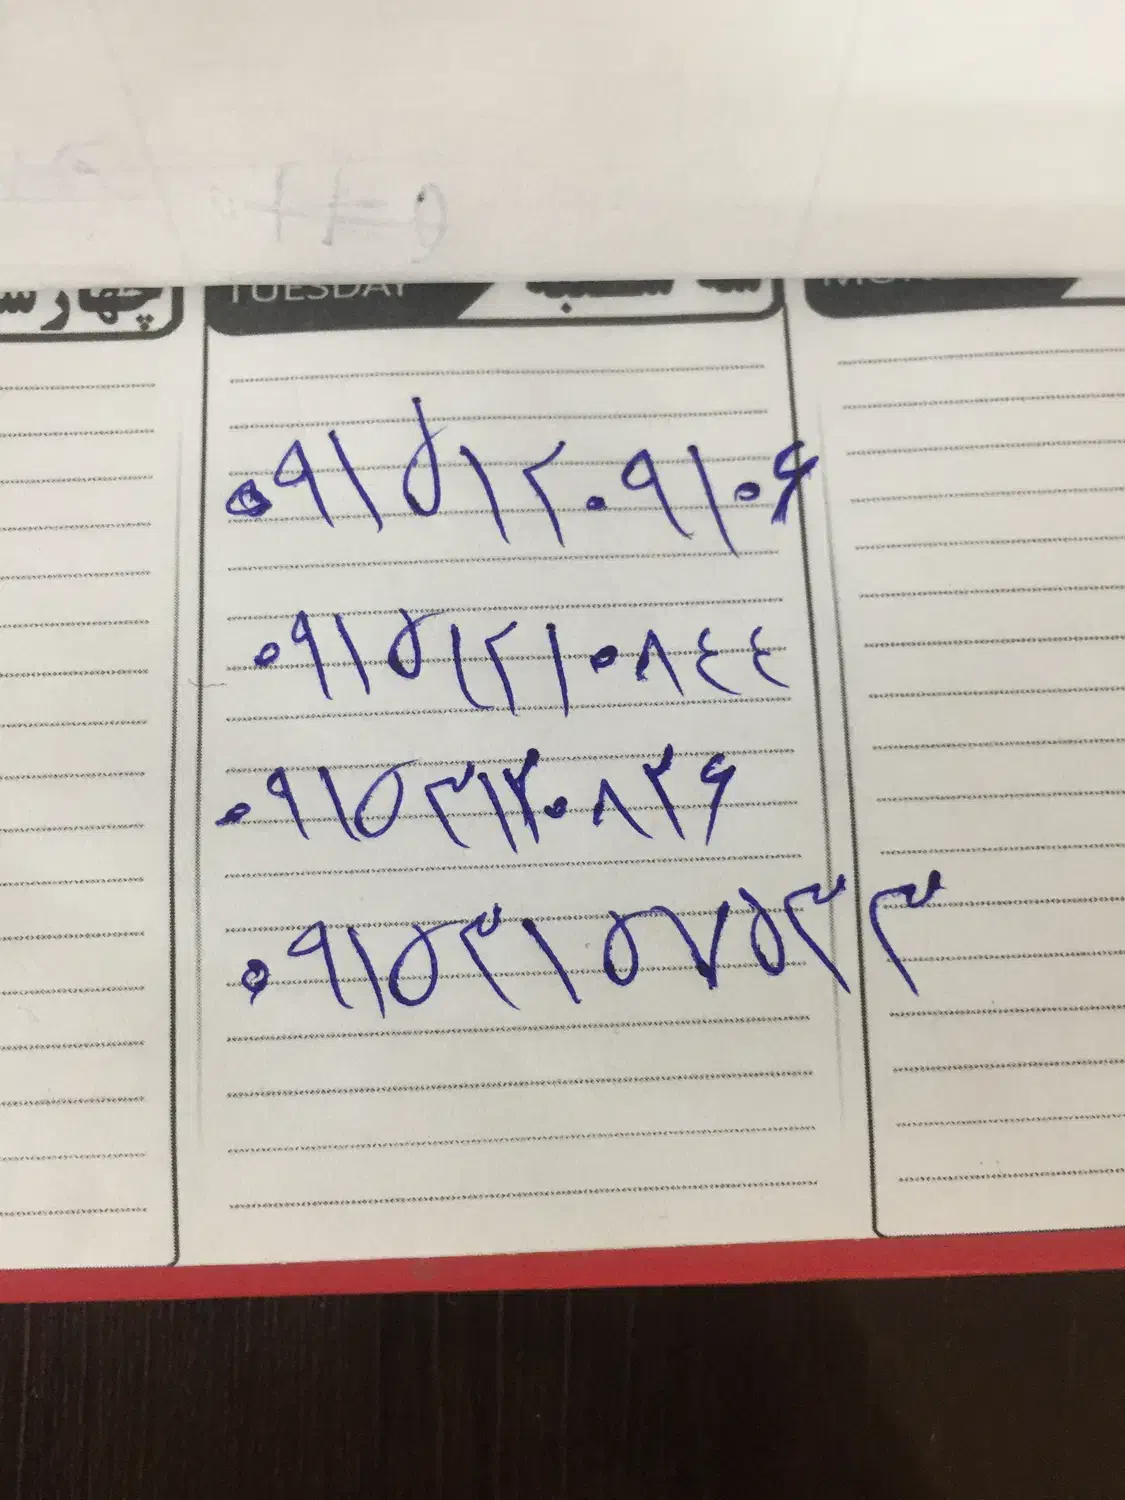 چهارش TUESDAY سه شنبه MON
۰۹۱۵۱۲۰۹۱۰۶
۰۹۱۵۱۲۱۰۸۴۴
۰۹۱۵۳۱۲۰۸۲۶
۰۹۱۵۳۱۵۷۵۳۳